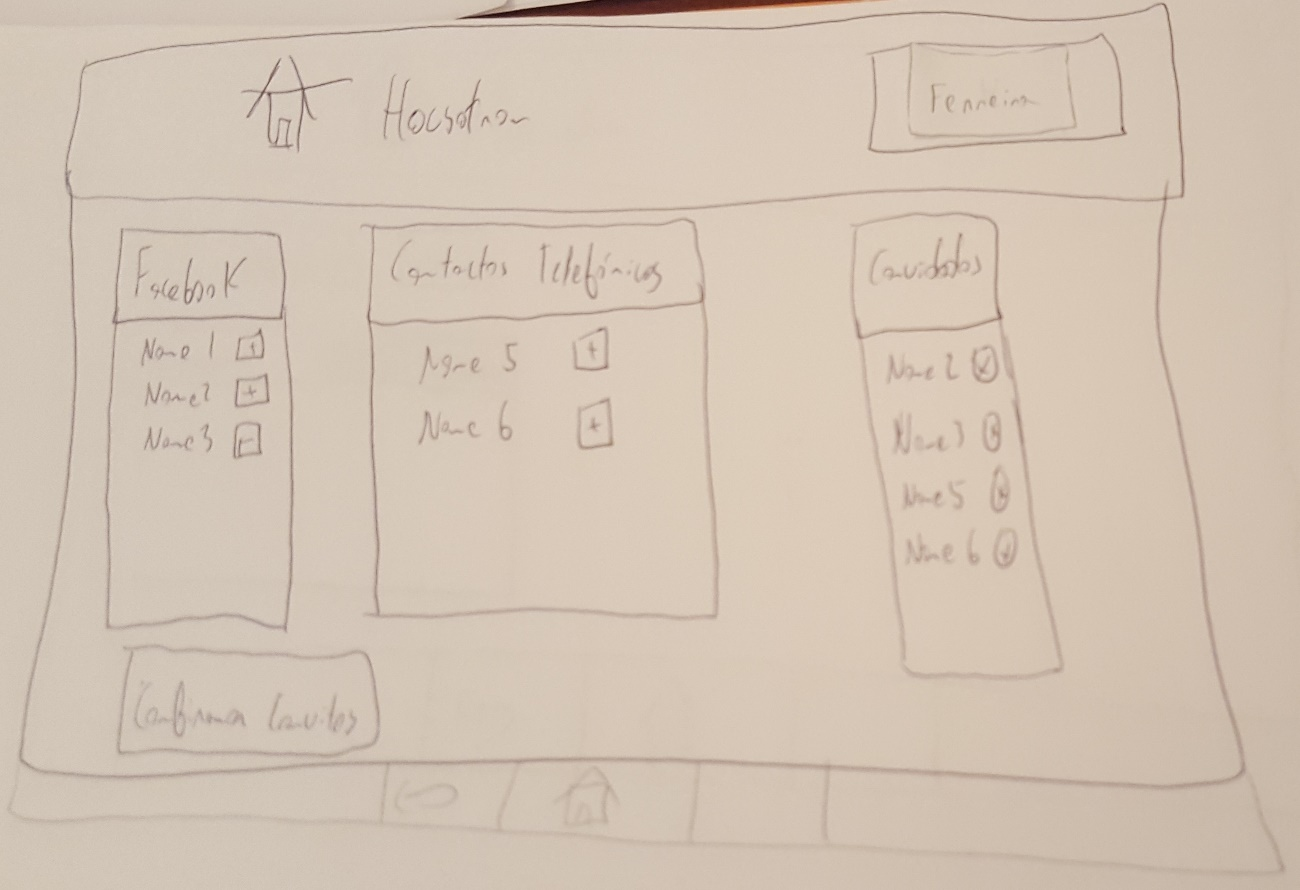 Hocsotnar
Ferreira
Facebook
Name 1 +
Name 2 +
Name 3 -
Contactos Telefónicos
Name 5 +
Name 6 +
Convidados
Name 2
Name 3
Name 5
Name 6
Confirmar Convites